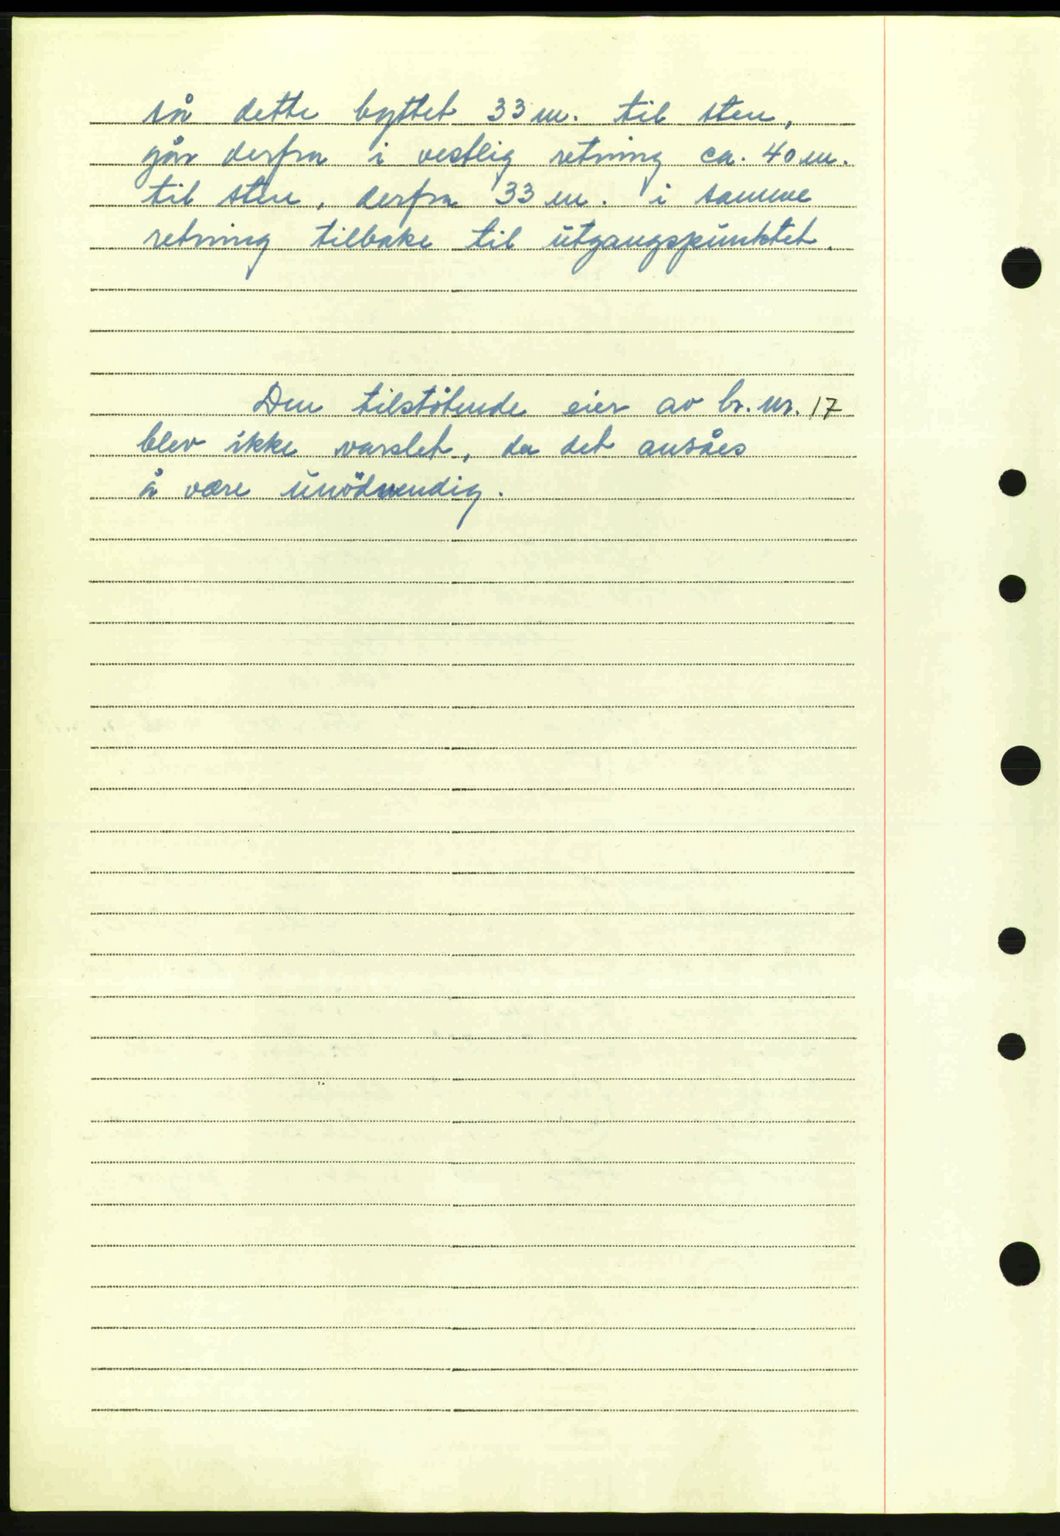 så dette byttet 33 m. til sten,
går derfra i vestlig retning ca. 40 m.
til sten, derfra 33 m. i samme
retning tilbake til utgangspunktet.
Den tilstötende eier av br. nr. 17
blev ikke varslet, da det ansåes
å være unödvendig.